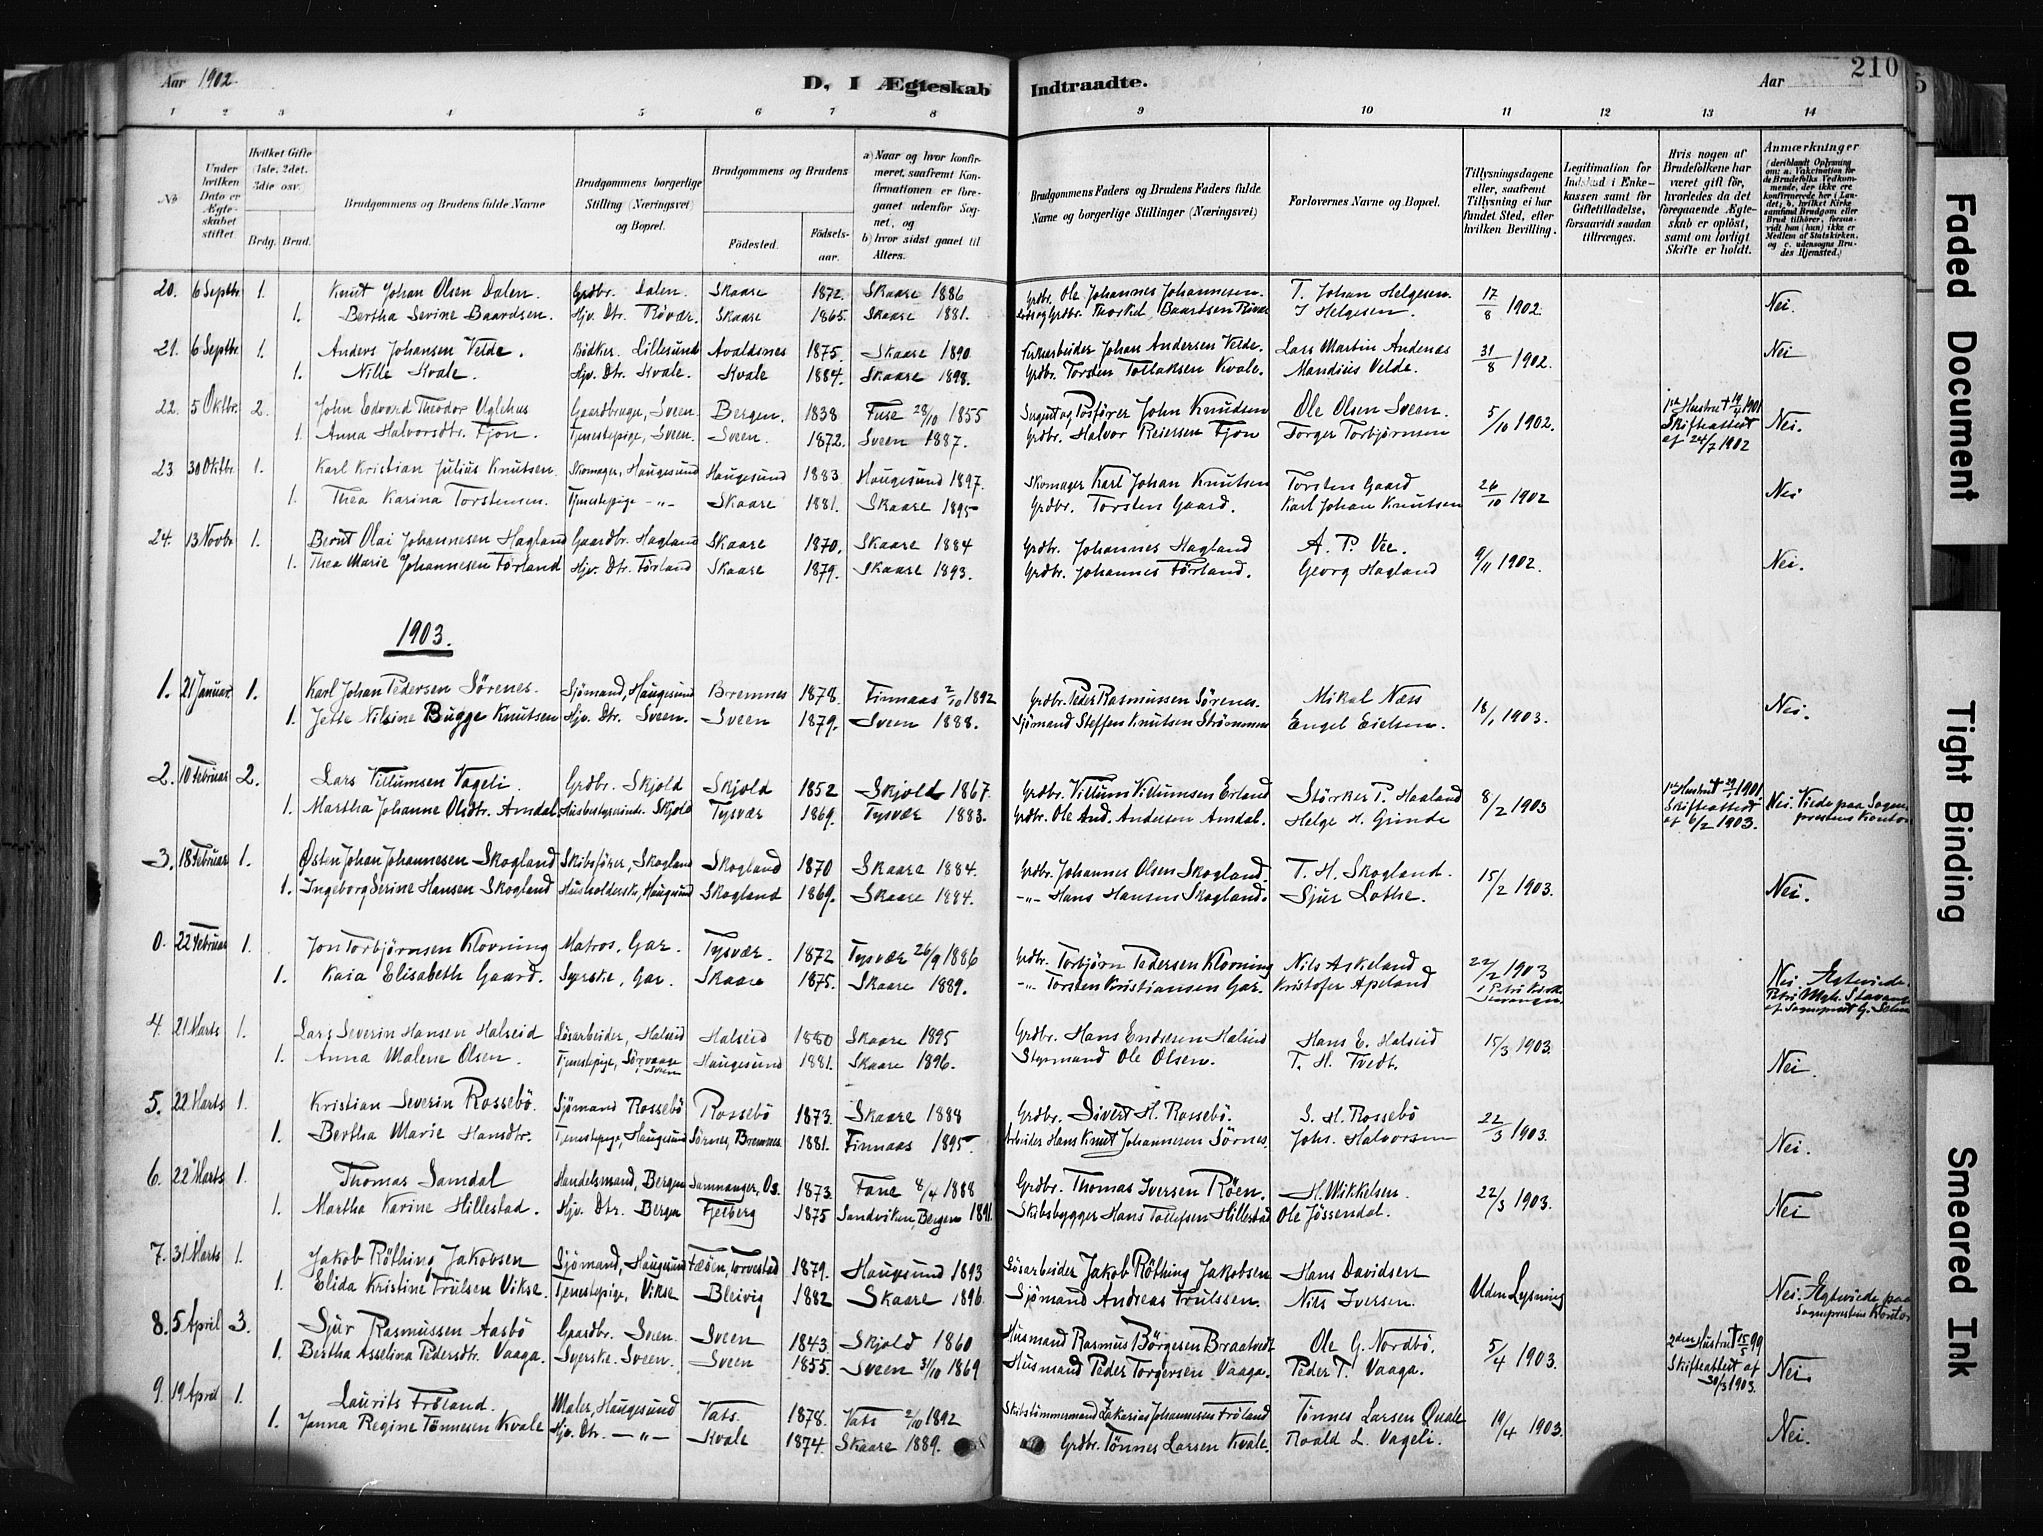 Aar 1902.
D, I Ægteskab Indtraadte.
Aar
210
5
1 2 3 4 5 6 7 8 9 10 11 12 13 14
No
Under hvilken Dato er Ægteskabet stiftet
Hvilket Gifte (1ste. 2det. 3die osv.)
Brdg. Brud.
Brudgommens og Brudens fulde Navne
Brudgommens borgerlige Stilling (Næringsvei) og Bopæl.
Brudgommens og Brudens
Fødested. Fødselsaar.
a) Naar og hvor konfirmeret, saafremt Konfirmationen er foregaaet udenfor Sognet, og b) hvor sidst gaaet til Alters.
Brudgommens Faders og Brudens Faders fulde Navne og borgerlige Stillinger (Næringsvei)
Forlovernes Navne og Bopæl.
Tillysningsdagene eller, saafremt Tillysning ei har fundet Sted, efter hvilken Bevilling.
Legitimation for Indskud i Enkekassen samt for Giftetilladelse, forsaavidt saadan tiltrænges.
Hvis nogen af Brudefolkene har været gift før, hvorledes da det foregaaende Ægteskab er opløst, samt om lovligt Skifte er holdt.
Anmærkninger (deriblandt Oplysning om: a. Vakcination for de Brudefolks Vedkommende, der ikke ere konfirmerede her i Landet; b. hvilket Kirkesamfund Brudgom eller Brud tilhører, forsaavidt han (hun) ikke er Medlem af Statskirken. og c. udensogns Brudes Hjemsted.)
20. 6 Septbr 1. Knut Johan Olsen Dalen. Grdbr. Dalen. Skaare 1872. Skaare 1886 Grdbr. Ole Johannes Johannesen. T. Johan Helgesen. 17/8 1902. Nei.
1. Bertha Serine Baardsen. Hjv. Dtr. Røvær. Skaare 1865. Skaare 1881. Grdbr. Thorkel Baardsen Røvær J Helgesen.
21. 6 Septbr 1. Anders Johansen Velde. Bødker. Lillesund Avaldsnes 1875. Skaare 1890. Johan Andersen Velde. Lars Martin Andenæs 31/8 1902. Nei
1. Nille Kvale. Hjv. Dtr. Kvale. Kvale 1884. Skaare 1898. Grdbr. Torsten Tollaksen Kvale. Mandius Velde.
22. 5 Oktbr. 2. John Edvard Theodor Uglehus Gaardbruger, Sveen. Bergen. 1838 Fuse 28/10 1855 John Knudsen Ole Olsen Sveen. 5/10 1902. 1ste Hustru † 1901 Skifteattest af 24/7 1902 Nei.
1. Anna Halvorsdtr. Fjon. Tjenestepige, Sveen. Sveen. 1872. Sveen 1887. Grdbr. Halvor Reiersen Fjon Torger Torbjørnsen
23 30 Oktbr. 1. Karl Kristian Julius Knutsen. Skomager, Haugesund Haugesund 1883 Haugesund 1897. Skomager Karl Johan Knutsen Torsten Gaard 26/10 1902 Nei
1. Thea Karina Torstensen. Tjenestepige -"- Skaare 1881. Skaare 1895 Grdbr. Torsten Gaard. Karl Johan Knutsen
24. 13 Novbr 1. Bernt Olai Johannesen Hagland Gaardbr. Hagland Skaare 1870. Skaare 1884 Grdbr. Johannes Hagland A. P. Vee. 9/11 1902. Nei.
1. Thea Marie Johannesen Førland Hjv. Dtr. Førland Skaare 1879. Skaare 1893. Grdbr. Johannes Førland. Georg Hagland
1903.
1. 21 Januar 1. Karl Johan Pedersen Sørenes. Sjømand, Haugesund Bremnes 1878. Finnaas 2/10 1892 Grdbr. Peder Rasmussen Sørenes. Mikal Næss 18/1 1903. Nei.
1. Jette Nilsine Bugge Knutsen Hjv. Dtr. Sveen. Sveen 1879. Sveen 1888. Sjømand Steffen Knutsen Strømmen Engel Eielsen.
2. 10 Februar 2. Lars Villumsen Vageli. Grdbr. Skjold Skjold 1852 Skjold 1867. Grdbr. Villum Villumsen Erland Størker T. Haaland 8/2 1903 1ste Hustru † 1901 Skifteattest af 6/2 1903. Nei. Viede paa Sogneprestens Kontor
1. Martha Johanne Olsdtr. Amdal Husbestyrerinde. Skjold Tysvær 1869. Tysvær 1883. Grdbr. Ole And. Andersen Amdal. Helge H. Grinde
3. 18 Februar 1. Østen Johan Johannesen Skogland Skibsfører, Skogland Skogland 1870 Skaare 1884. Grdbr. Johannes Olsen Skogland. T. H. Skogland. 15/2 1903. Nei.
1. Ingeborg Serine Hansen Skogland Husholderske, Haugesund Skogland 1869. Skaare 1884. -"- Hans Hansen Skogland. Sjur Lothe.
0. 22 Februar 1. Jon Torbjørnsen Klovning Matros, Gar. Tysvær. 1872 Tysvær 26/9 1886 Grdbr. Torbjørn Pedersen Klovning Nils Askeland 22/2 1903 i Petri Kirke Stavanger Nei. Egteviede. Petri Mgh. Stavanger af Sogneprest G.
1. Kaia Elisabeth Gaard. Syerske, Gar. Skaare 1875. Skaare 1889. -"- Torsten Kristiansen Gar. Kristofer Apeland
4. 21 Marts 1. Lars Severin Hansen Halseid Løsarbeider, Halseid Halseid 1880 Skaare 1895 Grdbr. Hans Endresen Halseid Hans E. Halseid 15/3 1903. Nei.
1. Anna Malene Olsen. Tjenestepige, Sørvaage i Sveen Haugesund 1881. Skaare 1896. Styrmand Ole Olsen. T. H. Tvedt.
5. 22 Marts 1. Kristian Severin Rossebø. Sjømand Rossebø Rossebø 1873. Skaare 1888 Grdbr. Sivert H. Rossebø. S. H. Rossebø 22/3 1903. Nei.
1. Bertha Marie Hansdtr. Tjenestepige, Haugesund Sørnes, Bremnes 1881. Finnaas 1895. Arbeider Hans Knut Johannesen Sørnes. Johs. Halvorsen
6. 22 Marts 1. Thomas Samdal Handelsmand, Bergen Samnanger, Os. 1873. Fane 8/4 1888 Grdbr. Thomas Iversen Røen. H. Mikkelsen. 22/3 1903. Nei
1. Martha Karine Hillestad. Hjv. Dtr. Bergen Fjelberg 1875 Sandviken, Bergen 1891. Skibsbygger Hans Tollefsen Hillestad Ole Jøssendal.
7. 31 Marts 1. Jakob Røthing Jakobsen Sjømand, Haugesund Fæøen, Torvestad 1879. Haugesund 1893 Løsarbeider Jakob Røthing Jakobsen Hans Davidsen Uden Lysning Nei. Egteviede paa Sogneprestens Kontor
1. Elida Kristine Trulsen Vikse. Tjenestepige, Vikse Bleivig 1882 Skaare 1896. Sjømand Andreas Trulssen. Nils Iversen.
8. 5 April 3. Sjur Rasmussen Aasbø Gaardbr. Sveen. Sveen 1843. Skjold 1860 Husmand Rasmus Børgesen Braatvedt Ole G. Nordbø. 5/4 1903. 2den Hustru † 15/5 99 Skifteattest af 30/3 1903. Nei.
1. Bertha Asselina Pedersdtr. Vaaga. Syerske. Sveen. Sveen 1855. Sveen 31/10 1869 Husmand Peder Torgersen Vaaga. Peder T. Vaaga.
9. 19 April 1. Laurits Frøland. Maler, Haugesund Vats. 1878. Vats 2/10 1892 Skibstømmermand Zakarias Johannesen Frøland Tønnes Larsen Qvale 19/4 1903. Nei.
1. Janna Regine Tønnesen Kvale Hjv. Dtr. -"- Kvale 1874. Skaare 1889. Grdbr. Tønnes Larsen Kvale. Roald L. Vageli.
Faded Document
Tight Binding
Smeared Ink